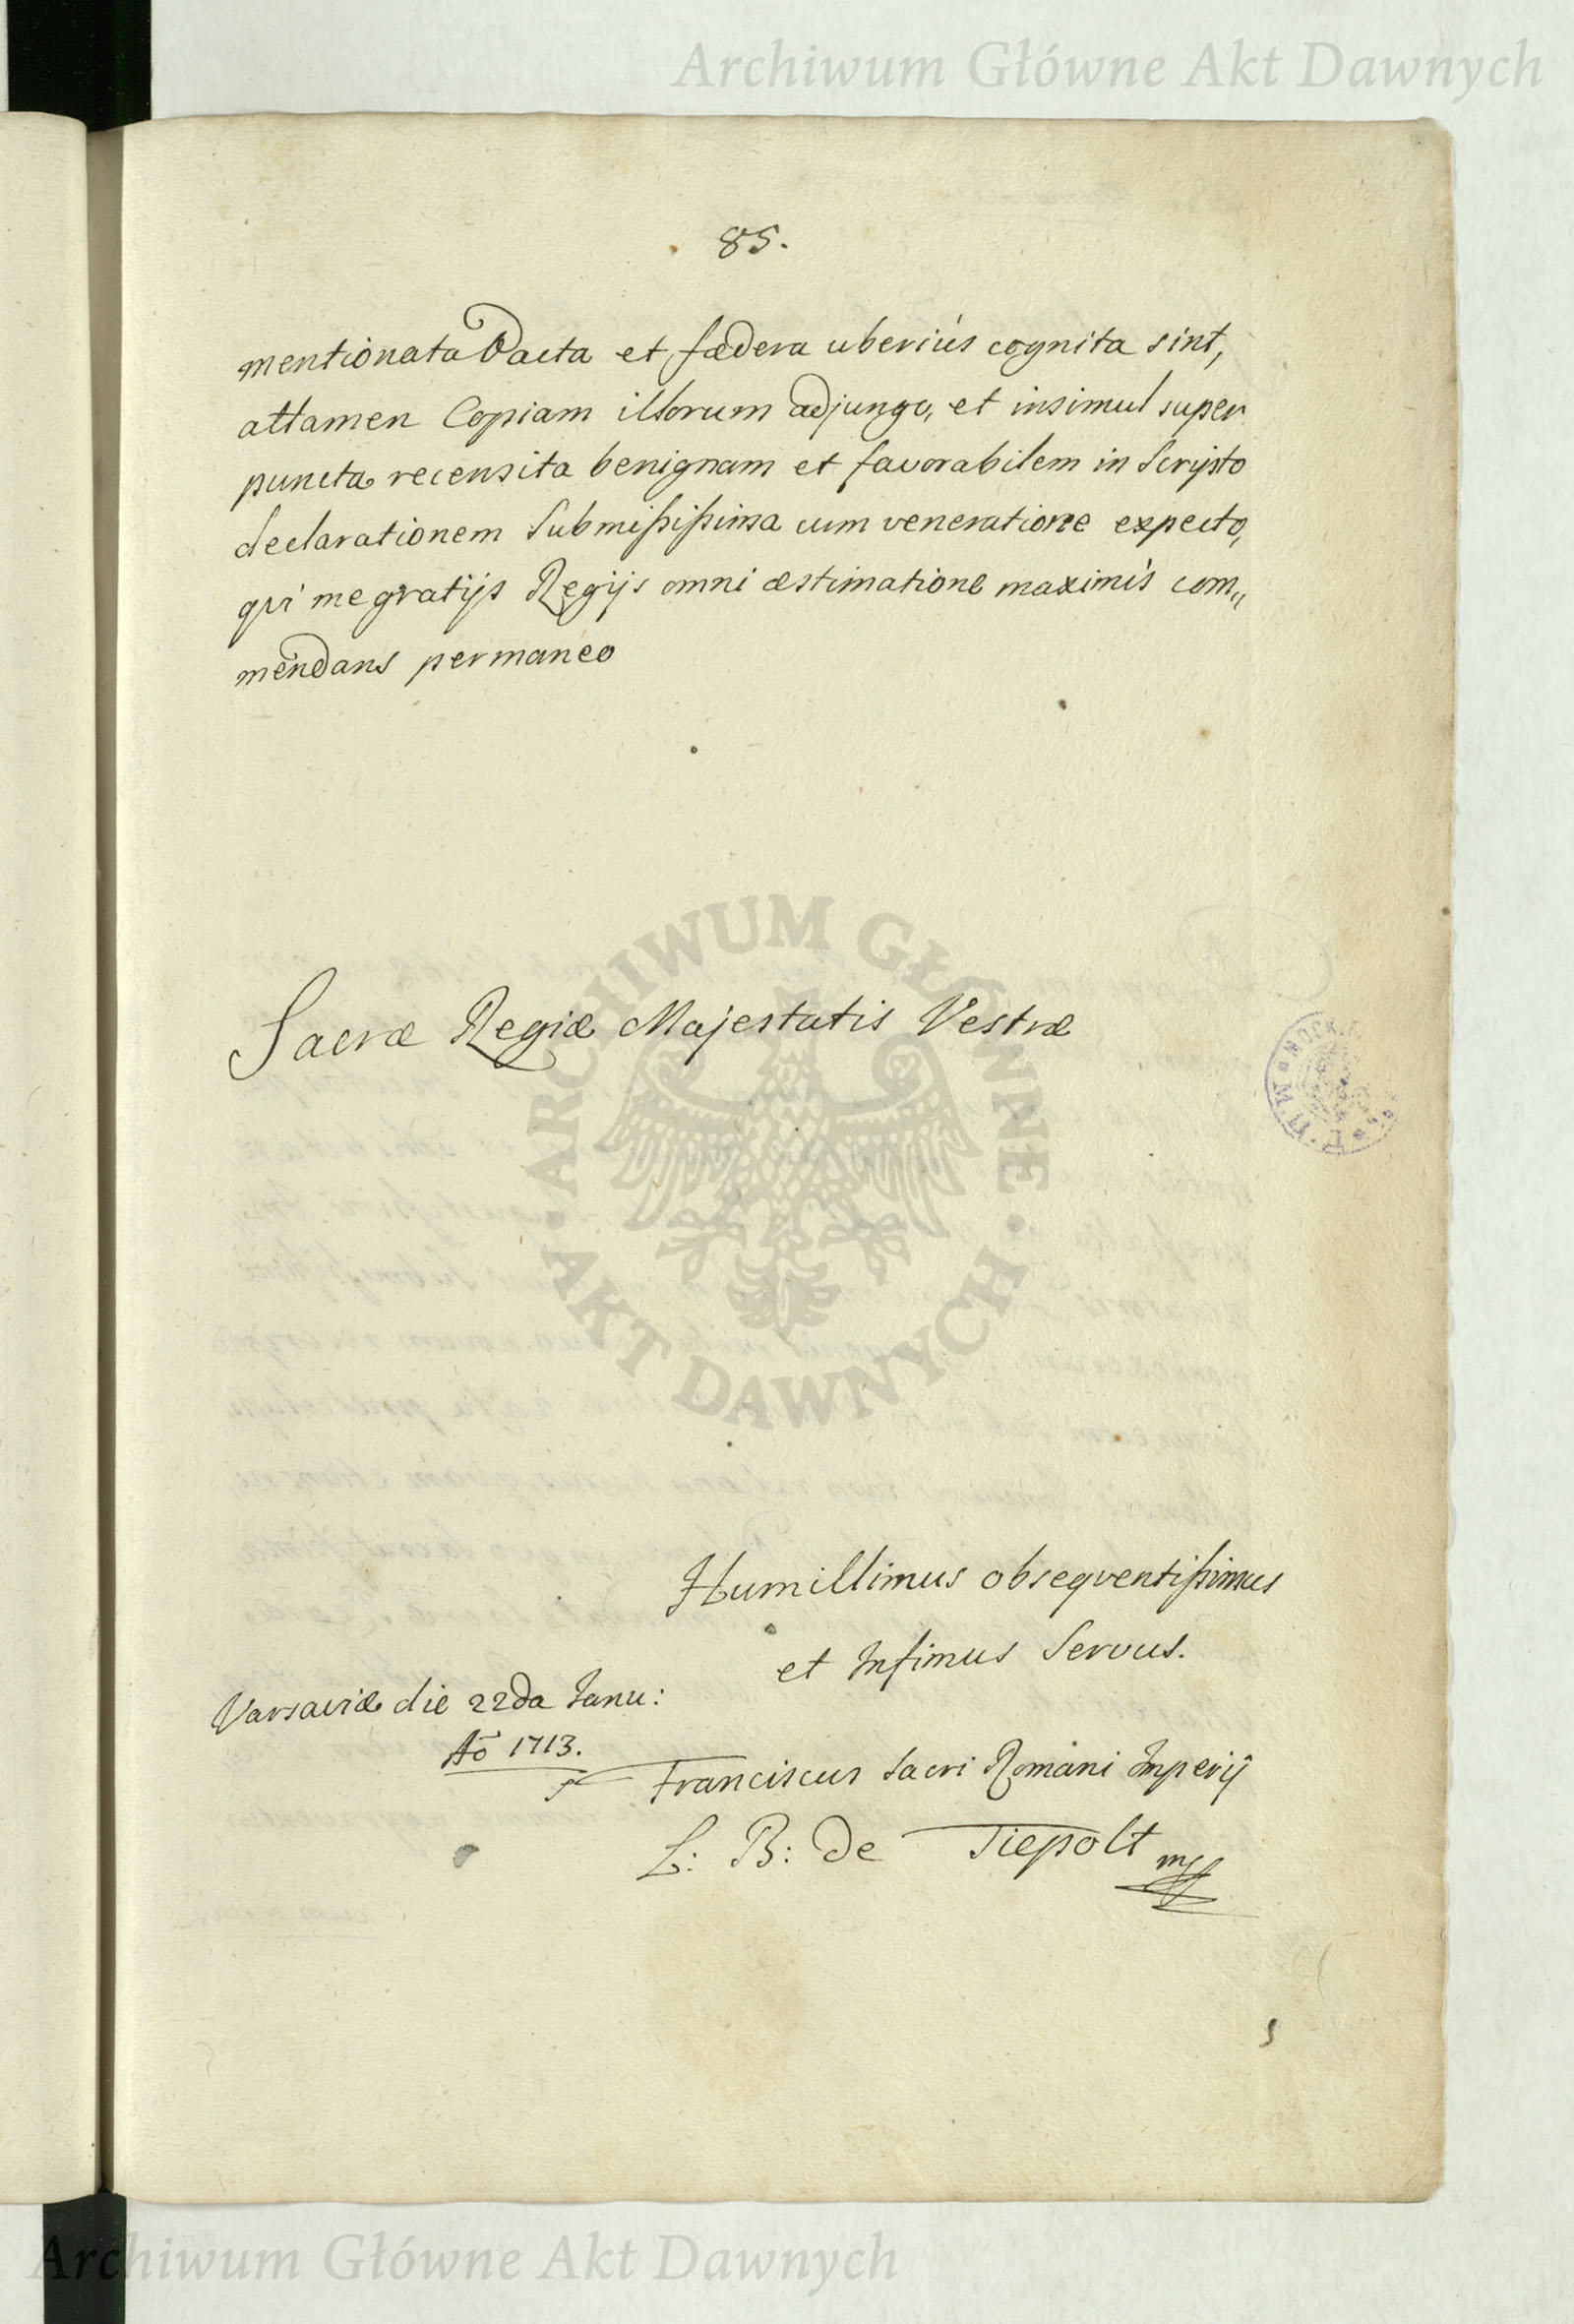 Archiwum Główne Akt Dawnych
85.
mentionata Pacta et fædera uberiùs cognita sint,
attamen Copiam illorum adjungo, et insimul super
puncta recensita benignam et favorabilem in Scripto
declarationem Submißißima cum veneratione expecto,
qvi me gratijs Regijs omni æstimatione maximis com„
mendans permaneo
Sacræ Regiæ Majestatis Vestræ
ARCHIWUM GŁÓWNE
AKT DAWNYCH
Humillimus obseqventißimus
et Infimus Servus.
Varsaviæ die 22da Janu:
Aō 1713.
Franciscus Sacri Romani Imperij
L: B: de Tiepolt
Archiwum Główne Akt Dawnych